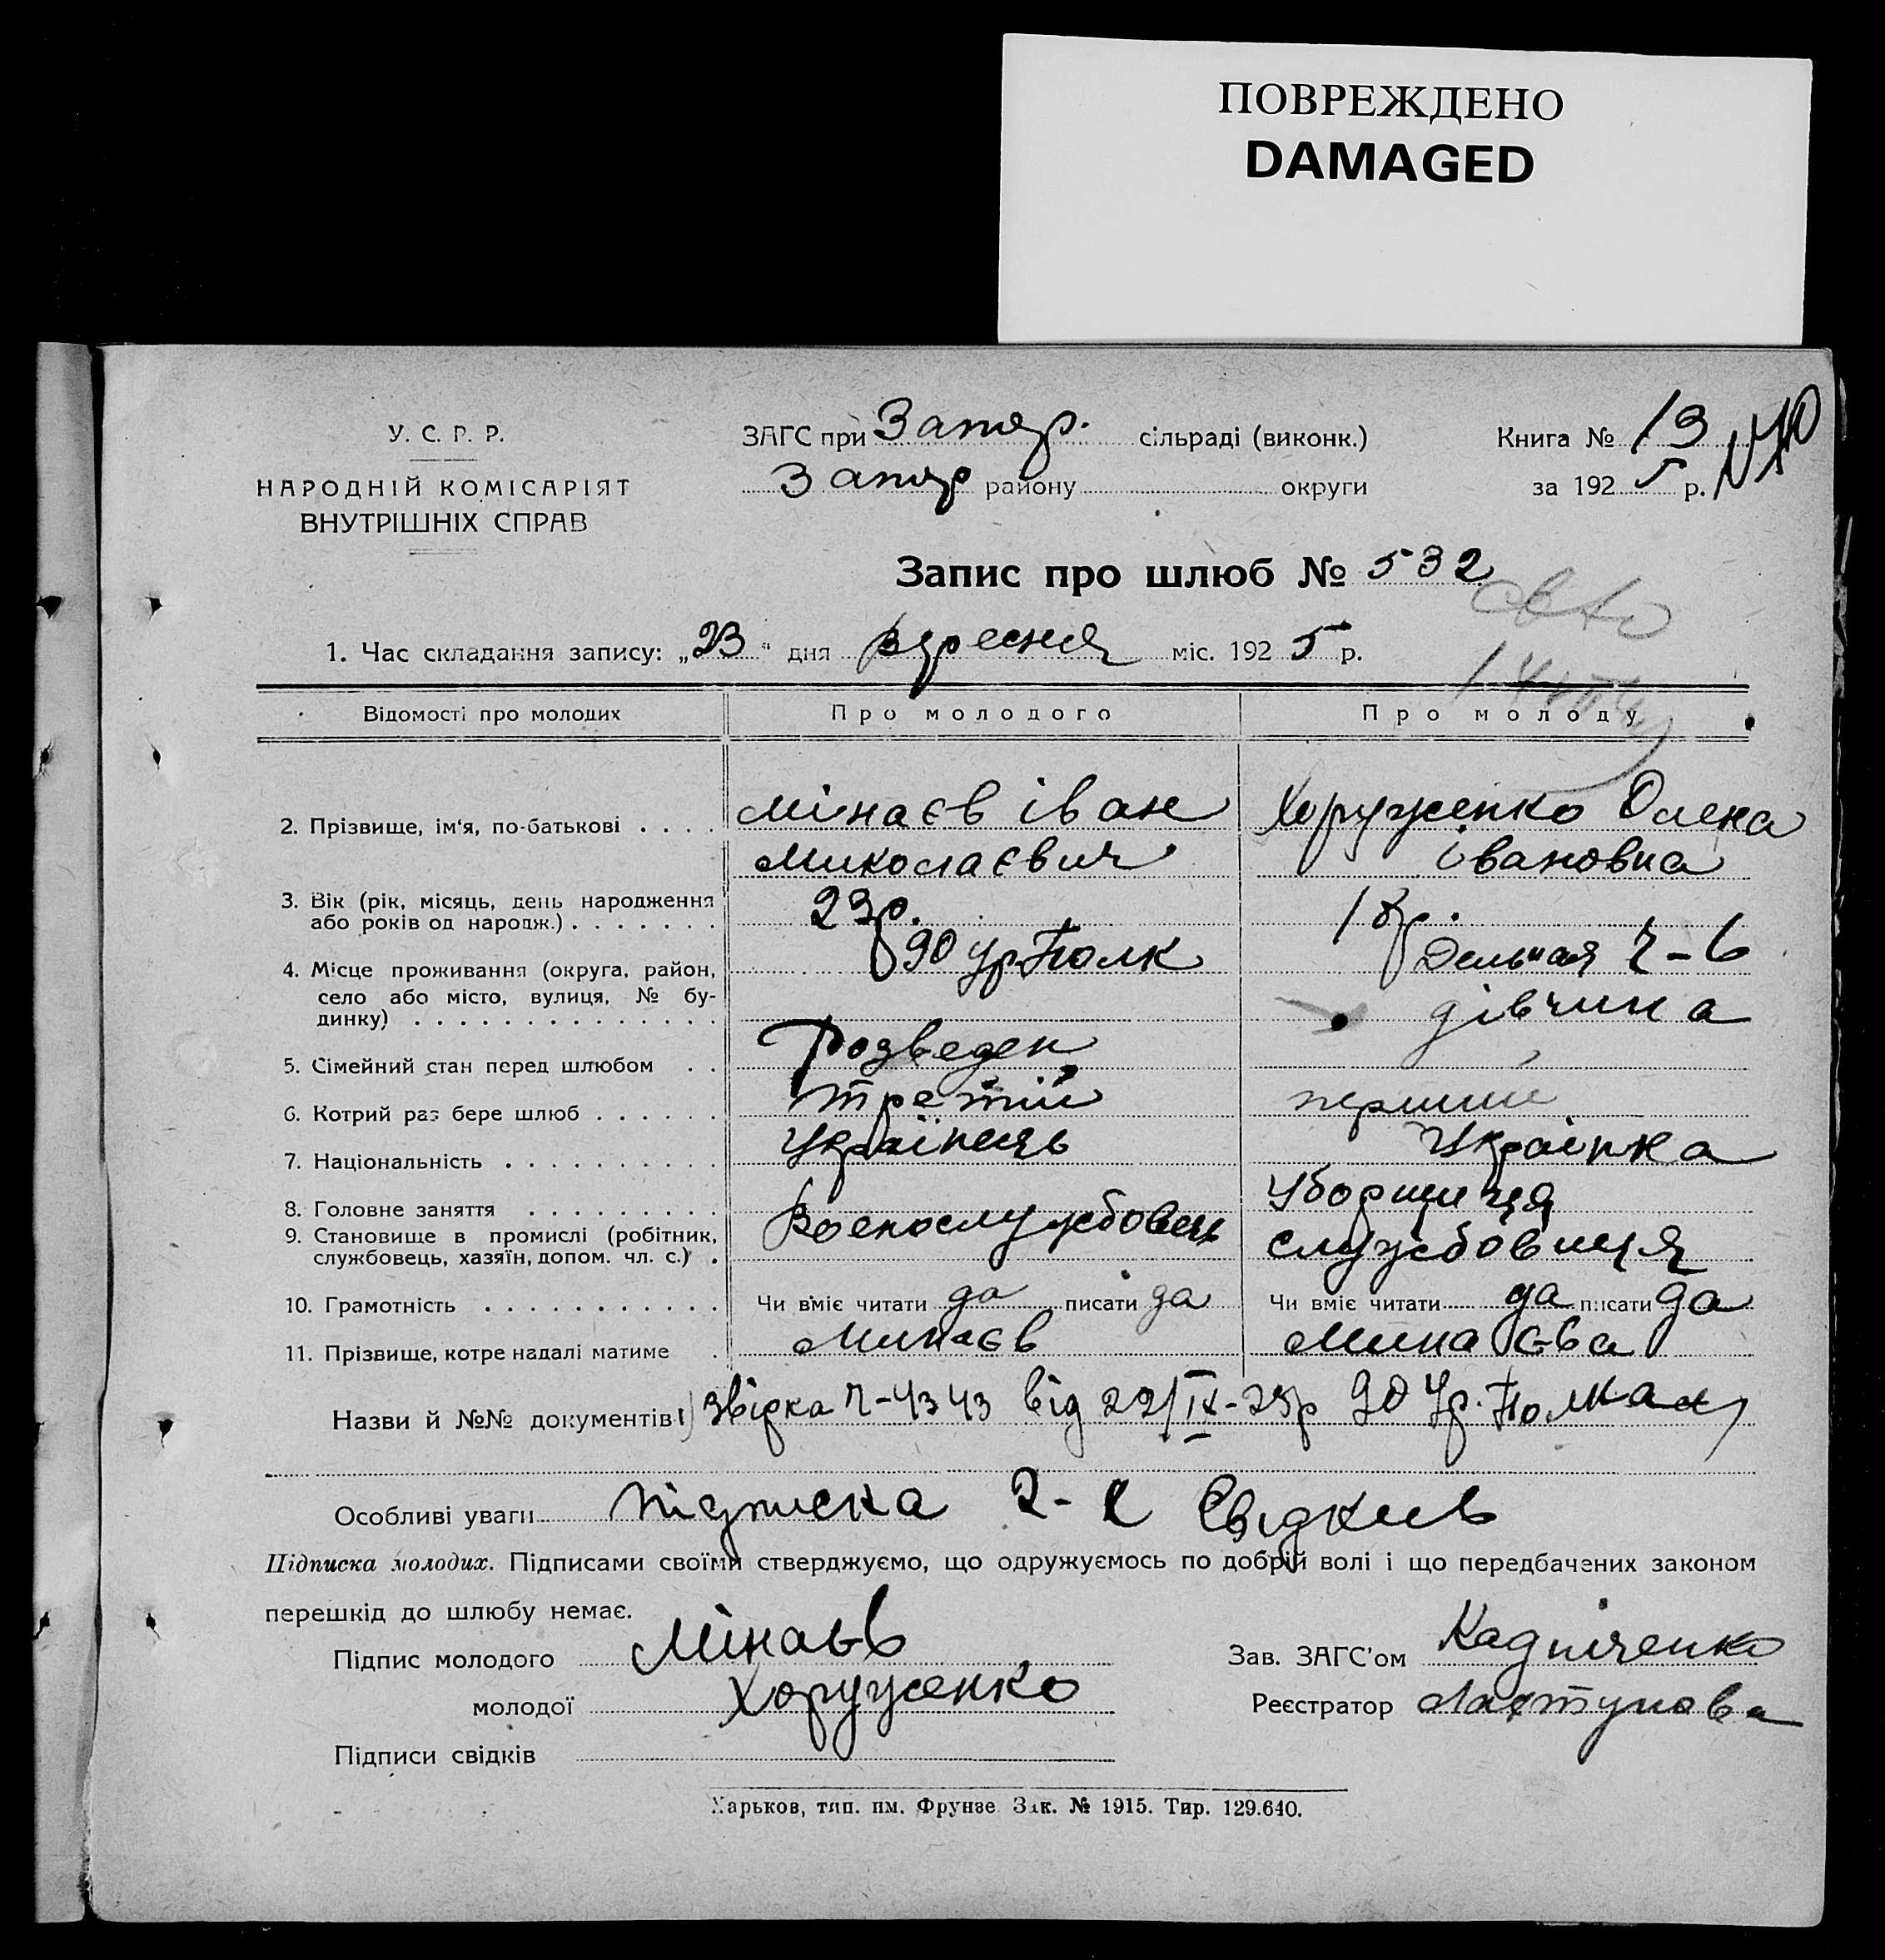 ПОВРЕЖДЕНО
DAMAGED
У. С. Р. Р.
НАРОДНІЙ КОМІСАРІЯТ
ВНУТРІШНІХ СПРАВ
ЗАГС при Запор. сільраді (виконк.)
Запор району округи
Книга № 13
за 1925 р.
Запис про шлюб № 532
1. Час складання запису: „23" дня вересня міс. 1925 р.
Відомості про молодих Про молодого Про молоду
2. Прізвище, ім'я, по-батькові . . . . Мінаєв Іван Хоруженко Олена
Миколаєвич Івановна
3. Вік (рік, місяць, день народження
або років од народж.) . . . . . . . 23р. 18р.
4. Місце проживання (округа, район, 90 Ур. Полк Дельная 7-6
село або місто, вулиця, № бу-
динку) . . . . . . . . . . . . . . . дівчина
5. Сімейний стан перед шлюбом . . Розведен
6. Котрий раз бере шлюб . . . . . . третій перший
7. Національність . . . . . . . . . . українець Українка
8. Головне заняття . . . . . . . . . . Военослужбовець Уборщиця
9. Становище в промислі (робітник,
службовець, хазяїн, допом. чл. с.) . службовиця
10. Грамотність . . . . . . . . . . . . Чи вміє читати да писати да Чи вміє читати да писати да
11. Прізвище, котре надалі матиме . Минаєв Минаєва
Назви й №№ документів 1) Звідка 7-4343 від 22/IX-25р 90 Ур.
Особливі уваги підписка 2-х Свідків
Підписка молодих. Підписами своїми стверджуємо, що одружуємось по добрій волі і що передбачених законом
перешкід до шлюбу немає.
Підпис молодого Мінаєв
молодої Хоруженко
Підписи свідків
Зав. ЗАГС'ом
Реєстратор
Харьков, тип. им. Фрунзе Зак. № 1915. Тир. 129.640.